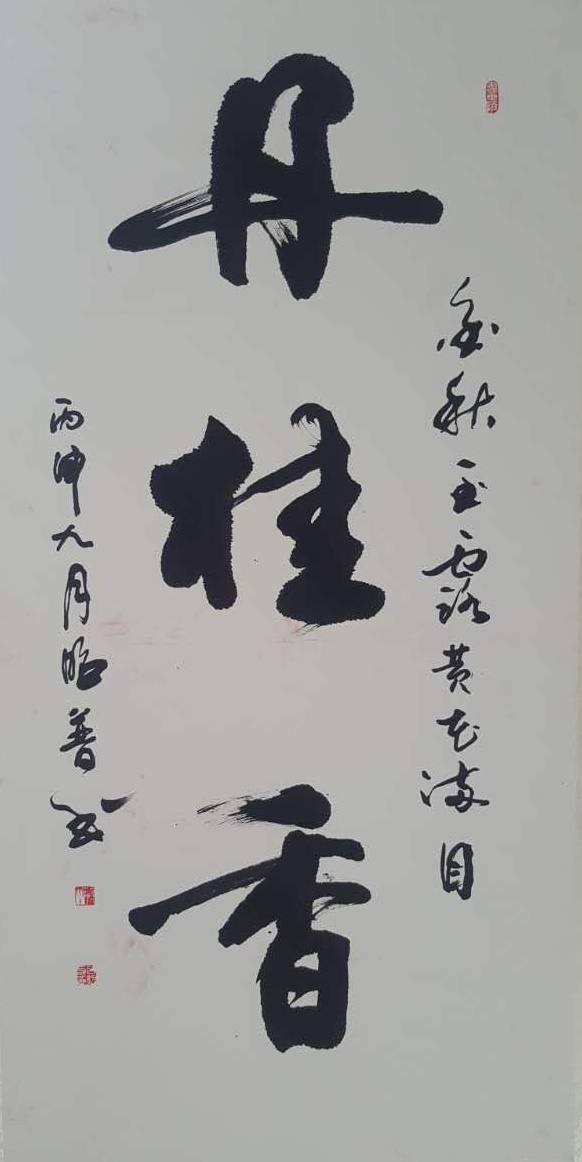 金秋玉露黄花满目
丹桂香
丙申九月昭普书